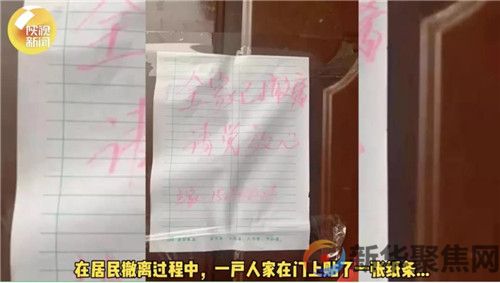 陕视
新闻
全家已撤离
请党放心
在居民撤离过程中，一户人家在门上贴了一张纸条...
新华聚焦网